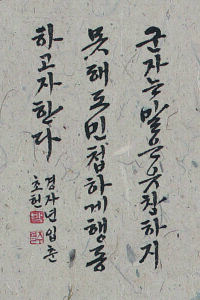 군자는 말은 유창하지
못해도 민첩하게 행동
하고자 한다
경자년 입춘
초헌